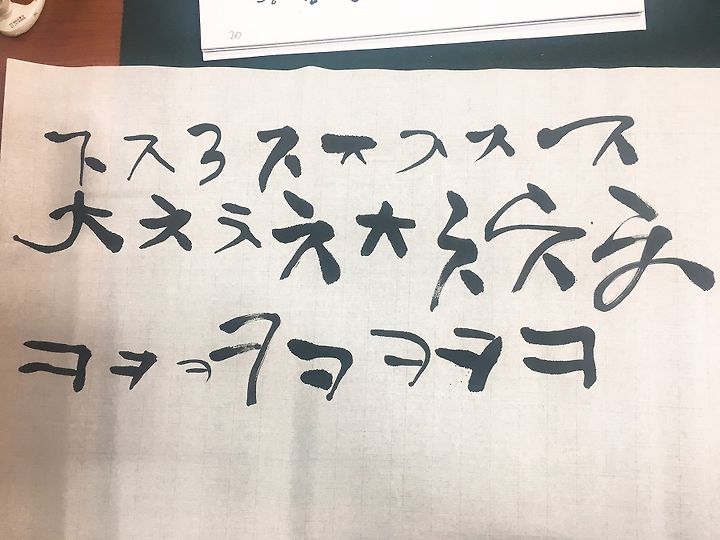 20
ㅈ ㅈ ㅈ ㅈ ㅈ ㅈ ㅈ ㅈ
ㅊ ㅊ ㅊ ㅊ ㅊ ㅊ ㅊ ㅊ
ㅋ ㅋ ㅋ ㅋ ㅋ ㅋ ㅋ ㅋ